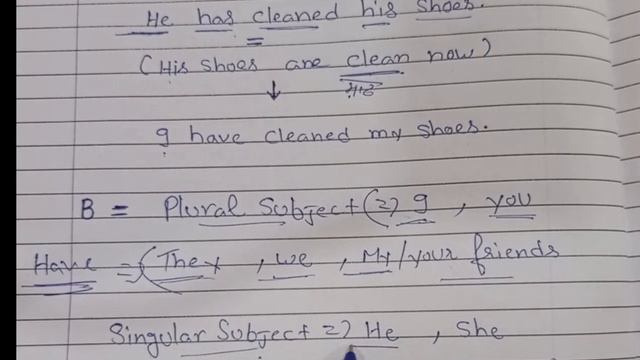 He has cleaned his shoes.
(His shoes are clean now)
I have cleaned my shoes.
B = Plural Subject (=) I, you
Have = (They, we, My/your friends
Singular Subject =) He, She